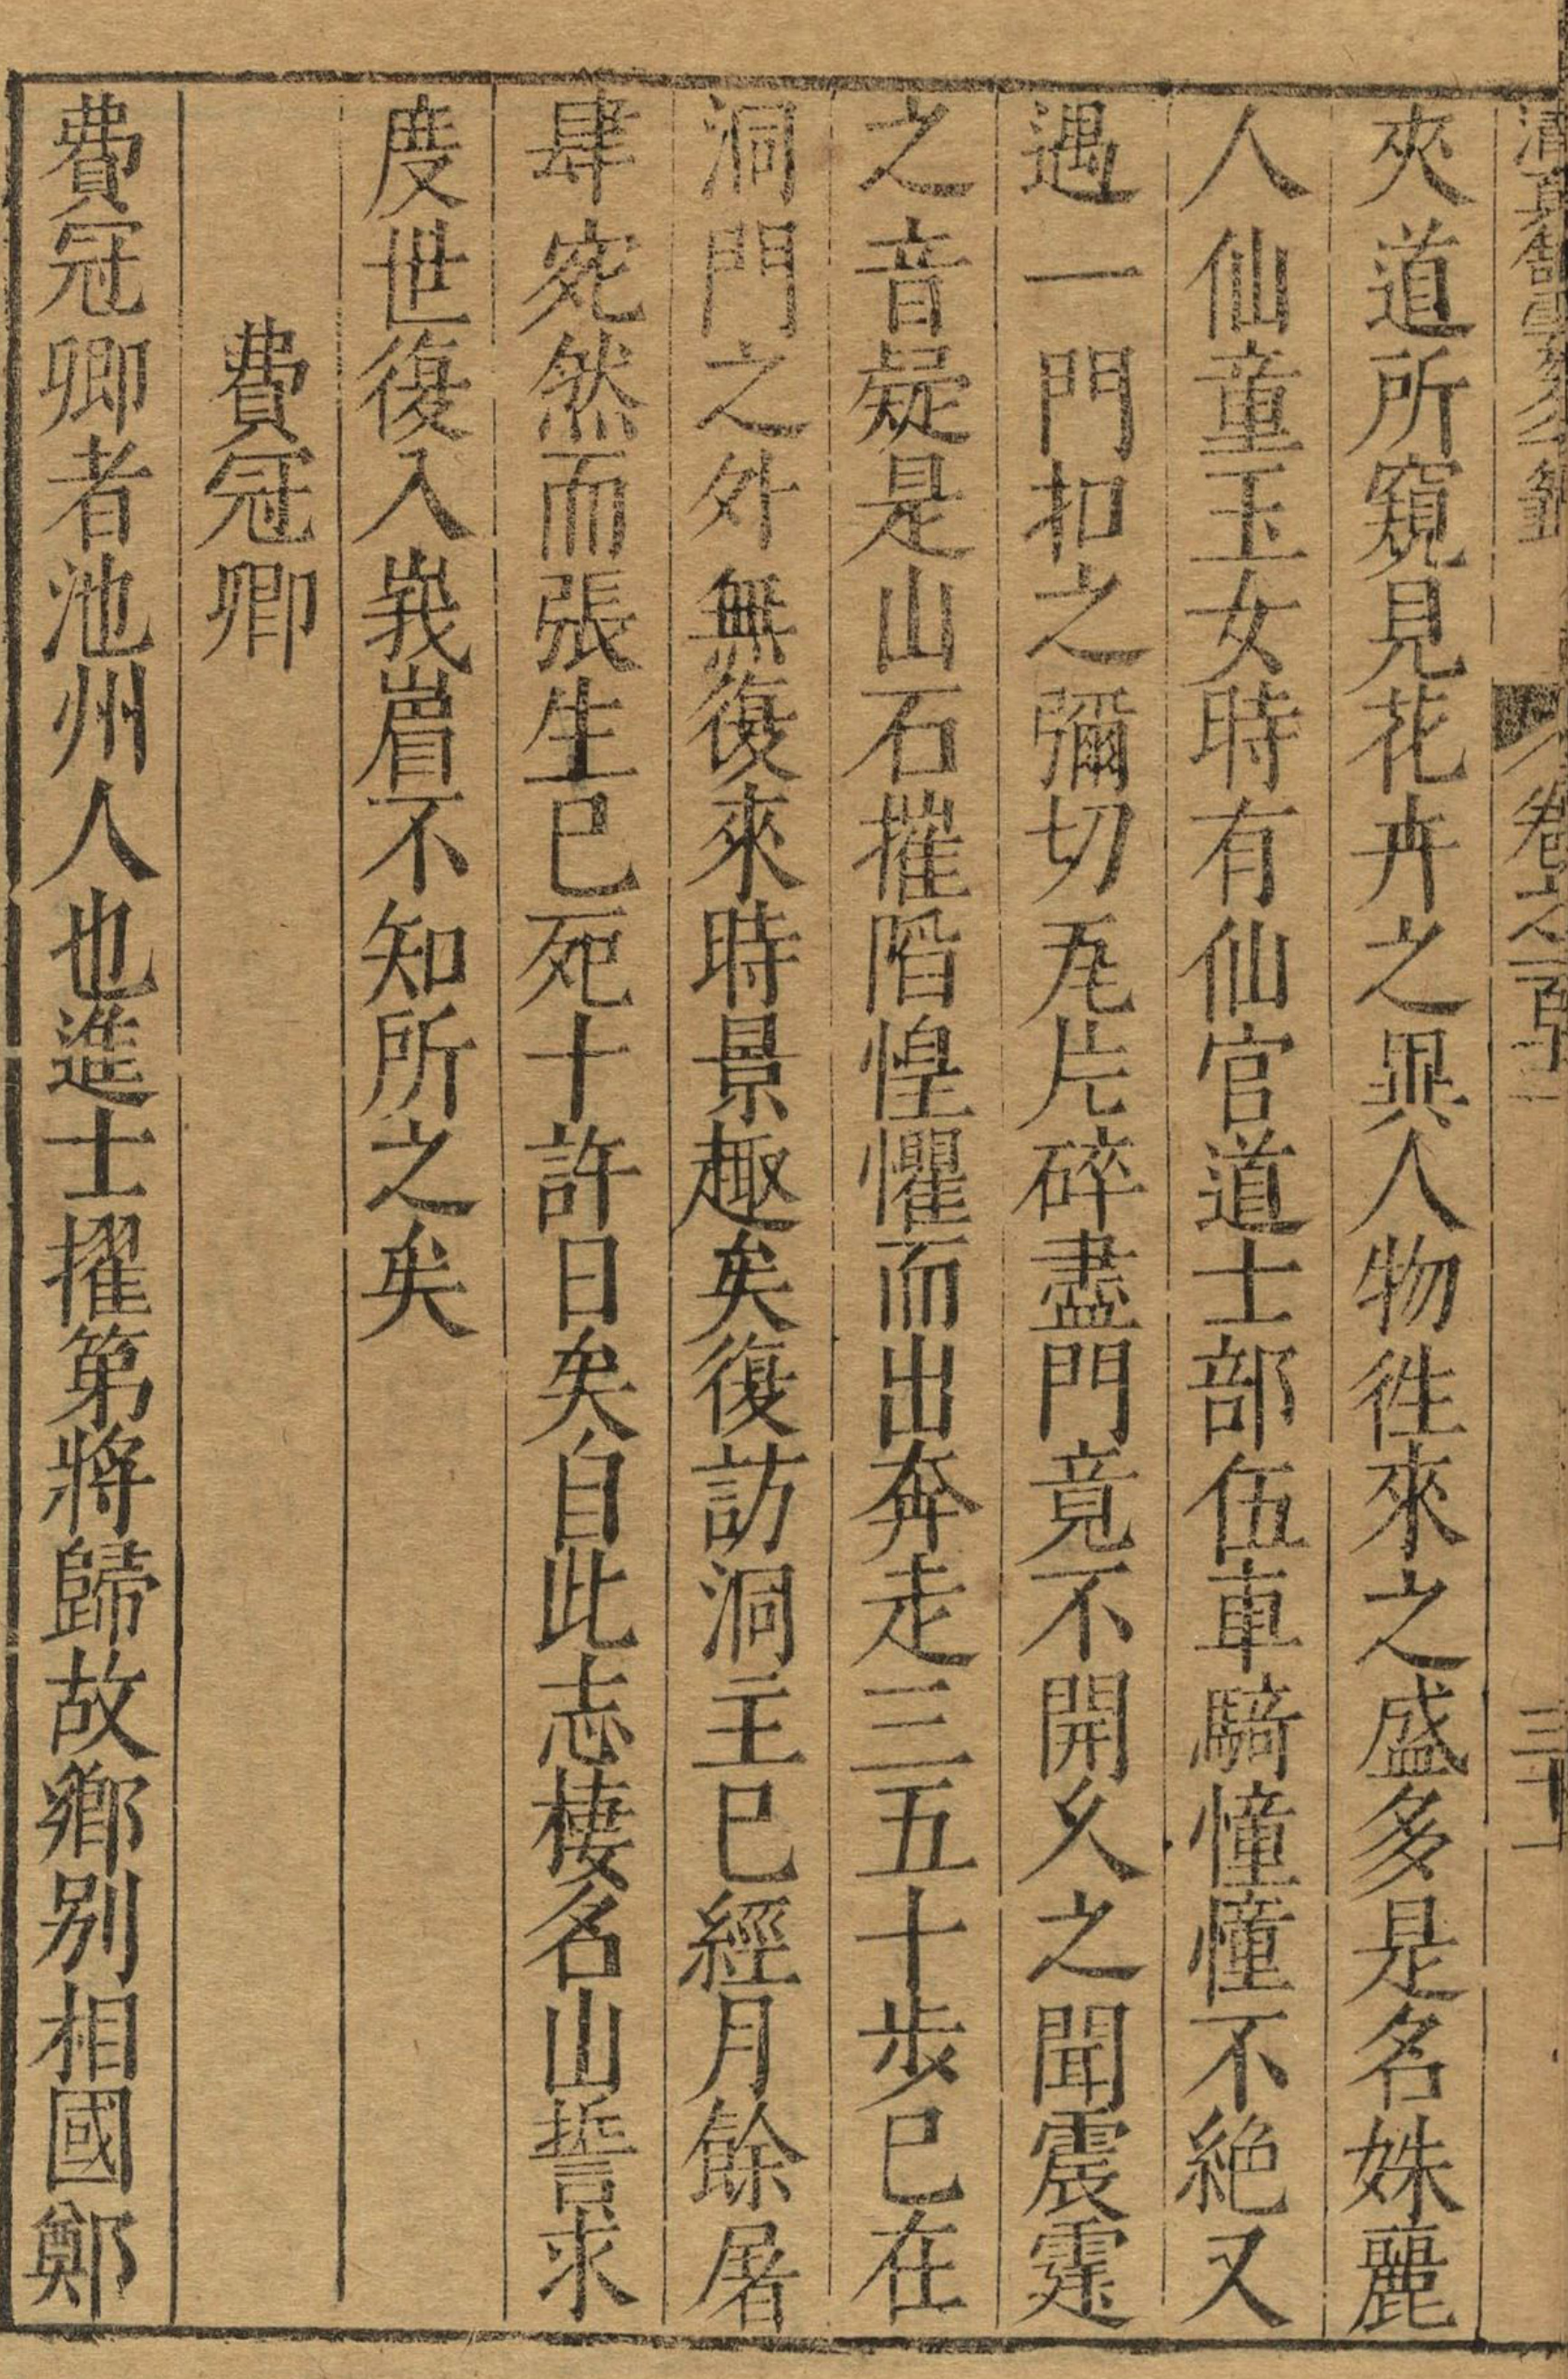 卷之百十二 三十一
夾道所窺見花卉之異人物往來之盛多是名姝麗
人仙童玉女時有仙官道士部伍車騎憧憧不絶又
遇一門扣之彌切瓦片碎盡門竟不開久之聞震霆
之音疑是山石摧䧟惶懼而出奔走三五十步已在
洞門之外無復來時景趣矣復訪洞主已經月餘屠
肆宛然而張生已死十許日矣自此志棲名山誓求
度世復入峩眉不知所之矣
費冠卿
費冠卿者池州人也進士擢第將歸故鄉别相國鄭